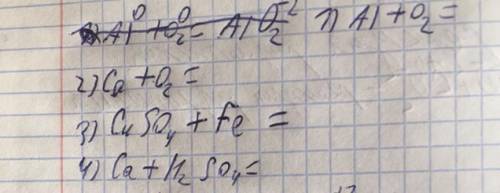 Al⁰ + O₂⁰ = AlO₂⁻² 1) Al + O₂ =
2) Ca + O₂ =
3) CuSO₄ + Fe =
4) Ca + H₂SO₄ =